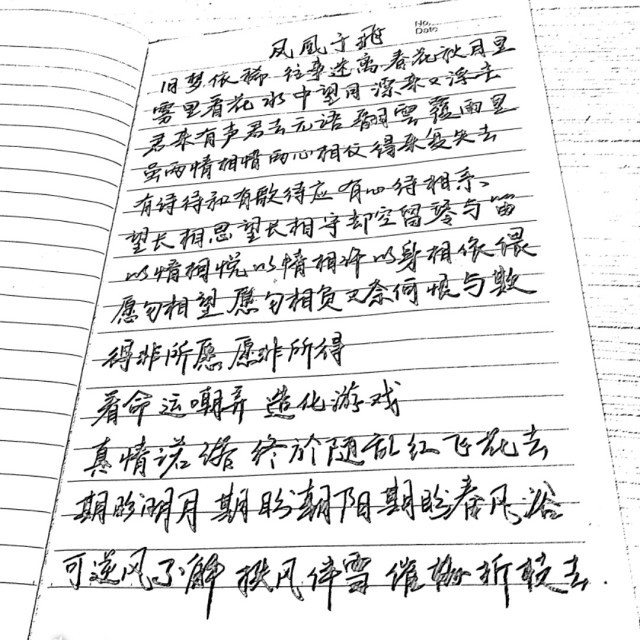 No.
Date
凤凰于飛
旧梦依稀 往事迷离 春花秋月里
雾里看花 水中望月 漂来又浮去
君来有声君去无语 翻雲覆雨里
虽两情相惜两心相仪得来复失去
有诗待和有歌待应 有心待相系
望长相思望长相守却空留琴与笛
以情相悦以情相许以身相依偎
愿勿相望愿勿相负又奈何恨与欺
得非所愿愿非所得
看命运嘲弄 造化游戏
真情诺诺 终於随乱红飞花去
期盼明月 期盼朝阳期盼春风浴
可逆风不解 挟风伴雪 催梅折枝去